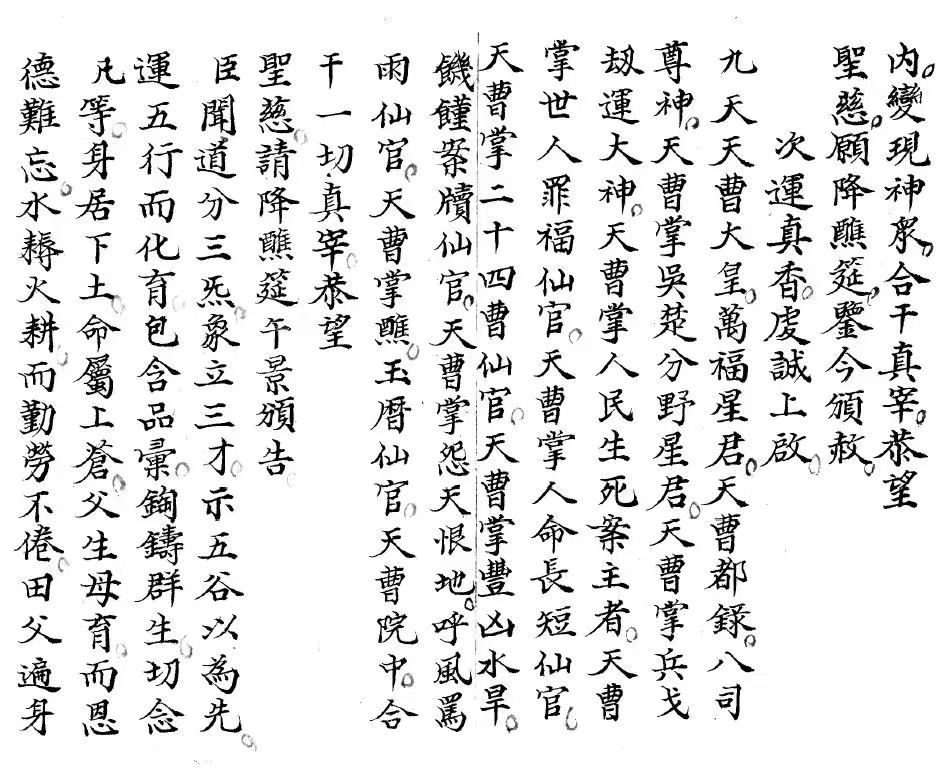 内。變現神衆。合干真宰。恭望
聖慈。願降醮筵。鑒今頒赦。
次運真香。虔誠上啟。
九天天曹大皇。萬福星君。天曹都錄。八司
尊神。天曹掌吳楚分野星君。天曹掌兵戈
刼運大神。天曹掌人民生死案主者。天曹
掌世人罪福仙官。天曹掌人命長短仙官。
天曹掌二十四曹仙官。天曹掌豐凶水旱。
饑饉案牘仙官。天曹掌怨天恨地。呼風罵
雨仙官。天曹掌醮。玉曆仙官。天曹院中。合
干一切真宰。恭望
聖慈。請降醮筵午景頒告
臣聞道分三炁。象立三才。示五谷以為先。
運五行而化育。包含品彙。鈞鑄群生。切念
凡等。身居下土。命屬上蒼。父生母育。而恩
德難忘。水耨火耕。而勤勞不倦。田父遍身